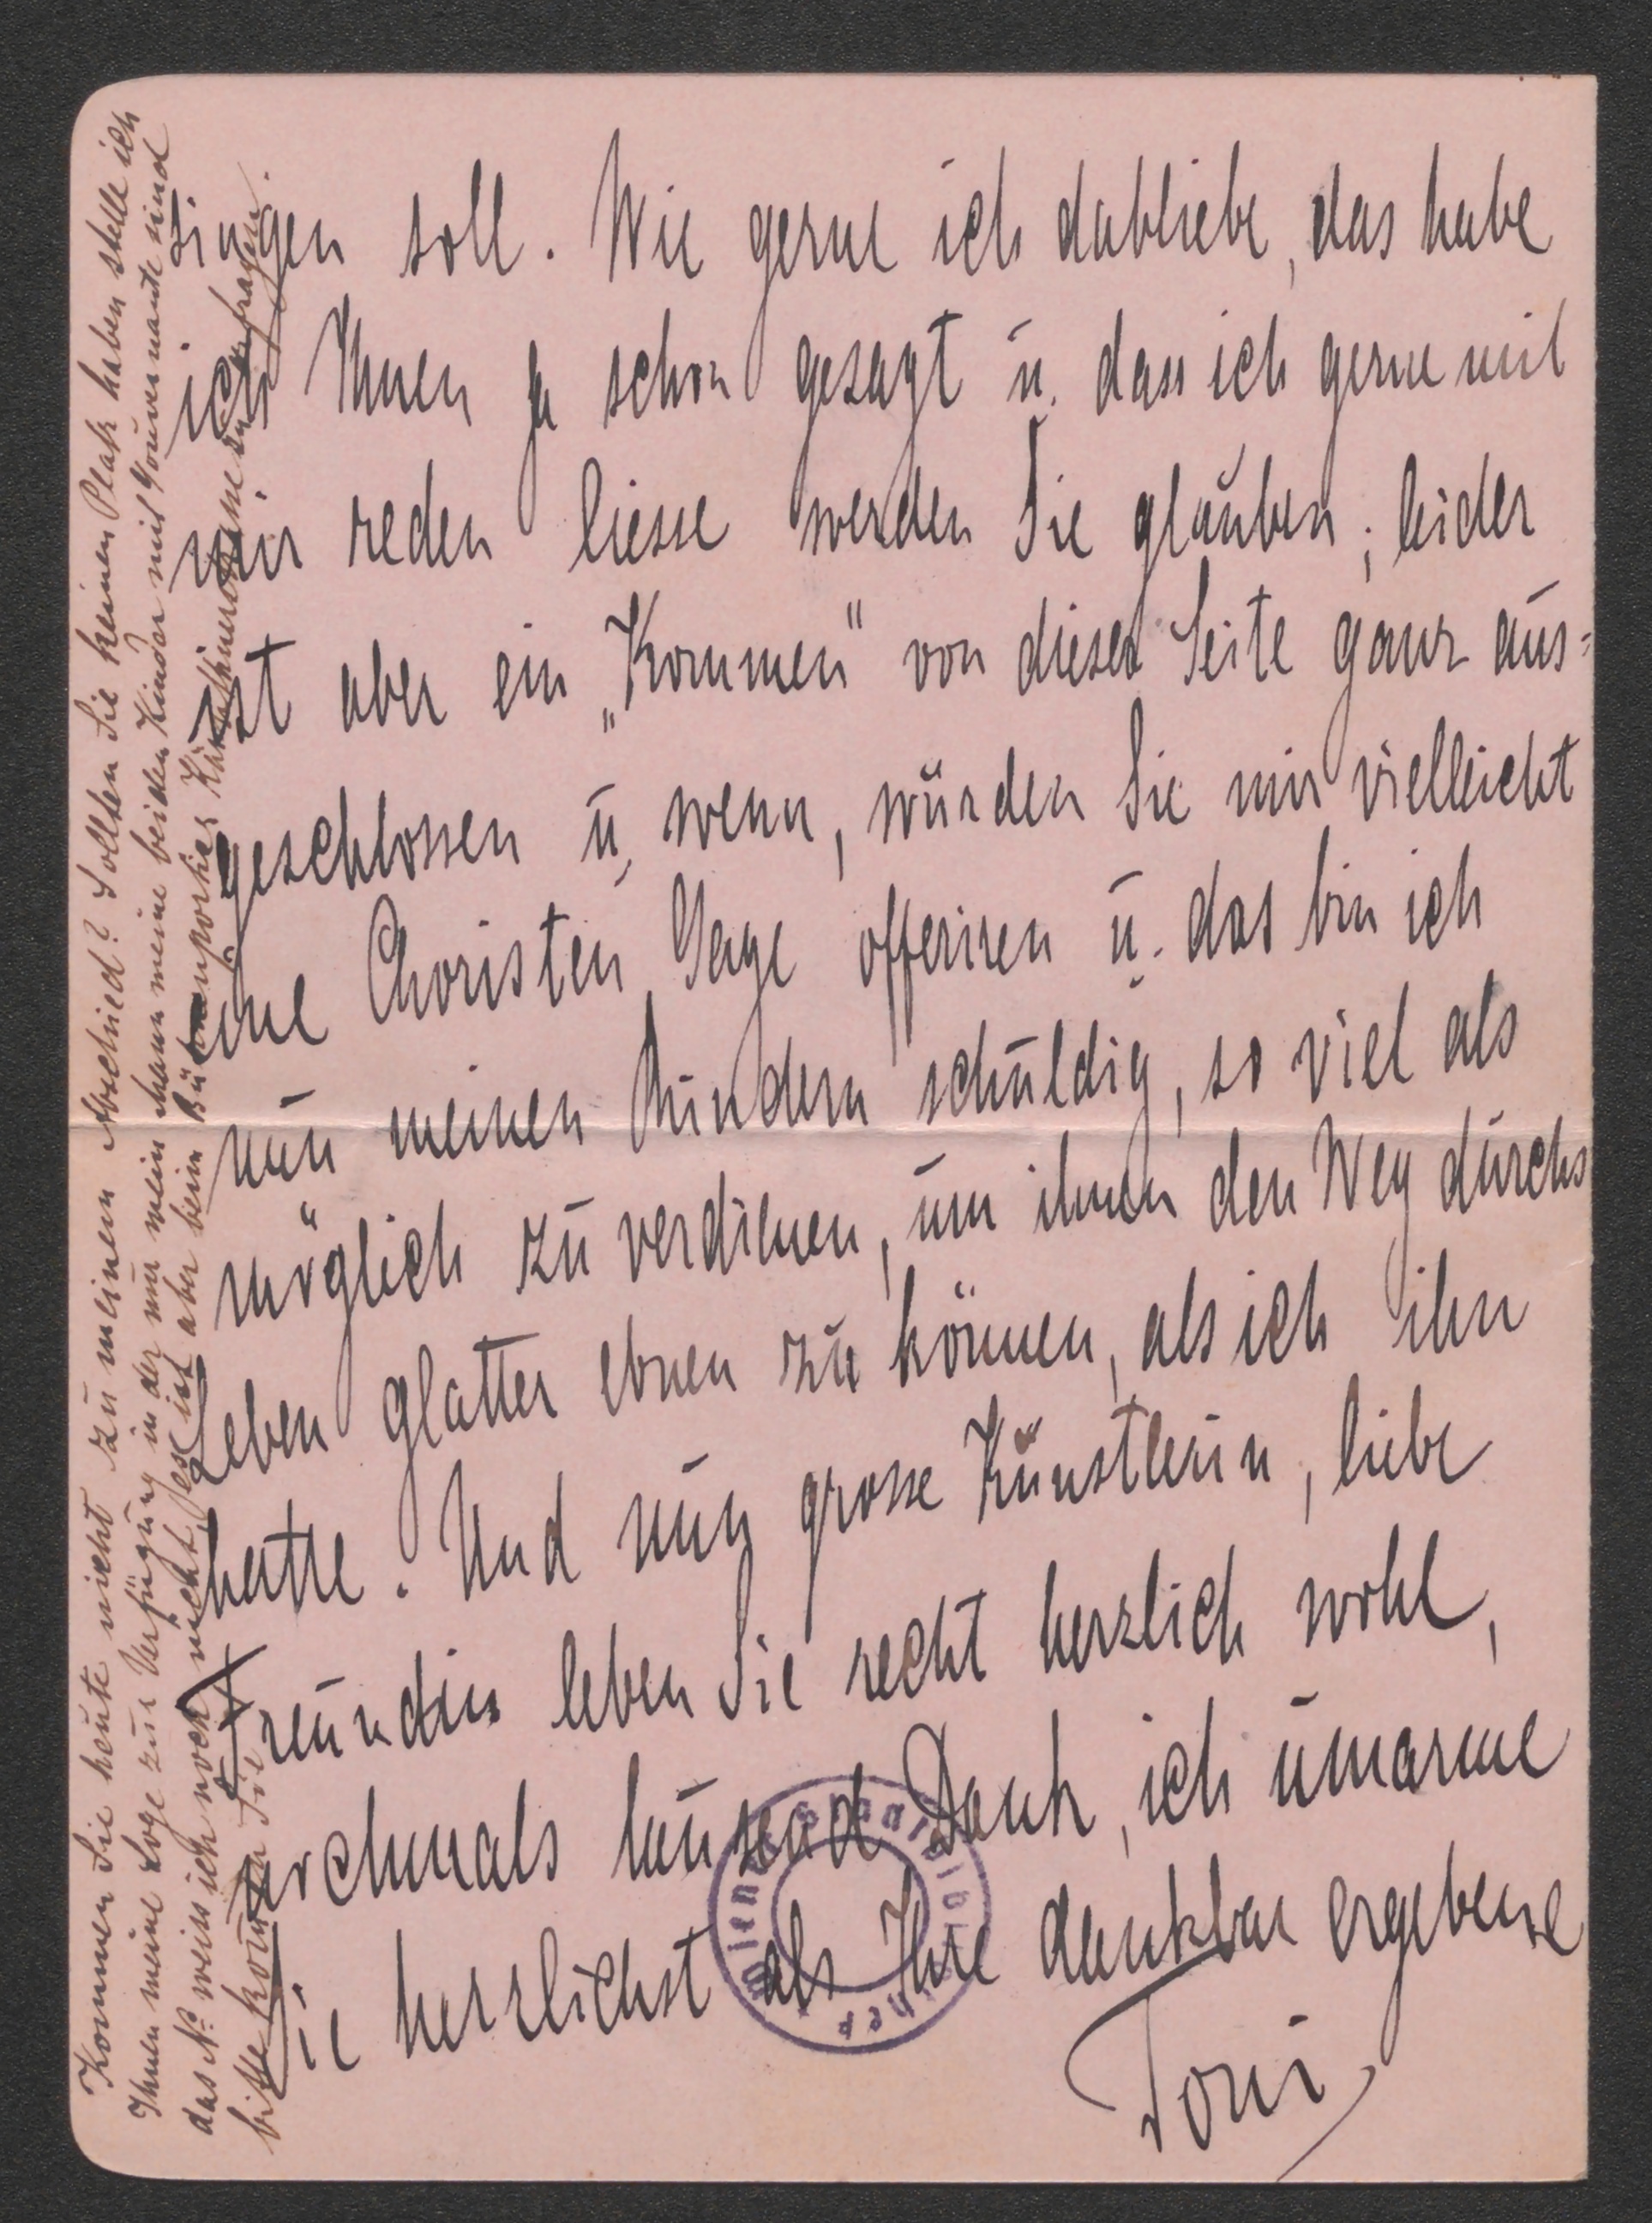 singen soll. Wie gerne ich dabliebe, das habe
ich Ihnen ja schon gesagt u. dass ich gerne mit
mir reden liesse werden Sie glauben; leider
ist aber ein „Kommen" von dieser Seite ganz aus=
geschlossen u. wenn, würden Sie mir vielleicht
eine Choristen Gage offeriren u. das bin ich
nun meinen Kindern schuldig, so viel als
möglich zu verdienen, um ihnen den Weg durchs
Leben glatter ebnen zu können, als ich ihn
hatte. Und nun grosse Künstlerin, liebe
Freundin leben Sie recht herzlich wohl,
nochmals tausend Dank, ich umarme
Sie herzlichst als Ihre dankbar ergebene
Toni
Kommen Sie heute nicht zu meinem Abschied? Sollten Sie keinen Platz haben stelle ich
Ihnen meine Loge zur Verfügung in der nur mein Mann meine beiden Kinder mit Gouvernante sind
das No weiss ich noch nicht, es ist aber beim Bühnenportier Kärnthnerstrasse zu erfragen.
bitte kommen Sie